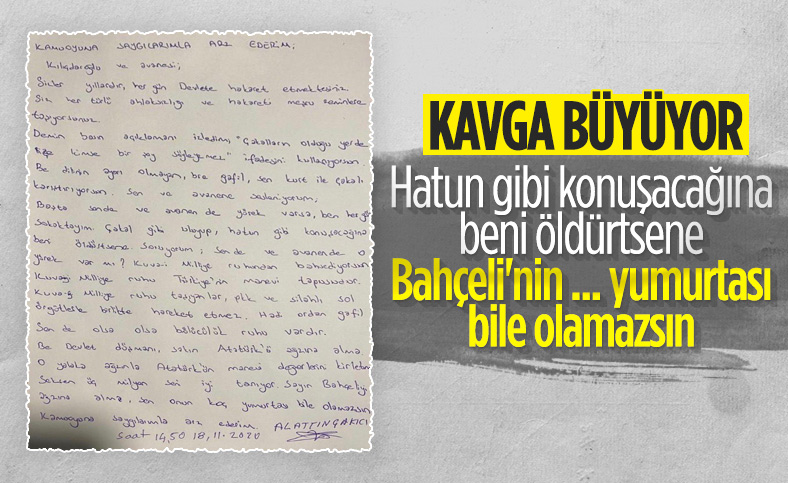 KAMUOYUNA SAYGILARIMLA ARZ EDERİM;
Kılıçdaroğlu ve avanesi;
Sizler yıllardır, her gün Devlete hakaret etmektesiniz.
Siz her türlü ahlaksızlığı ve hakareti meşru zeminlere
taşıyorsunuz.
Demin basın açıklamanı izledim, "Çakalların olduğu yerde
kimse bir şey söyleyemez" ifadesini kullanıyorsun.
Be dilinin ayarı olmayan, bre gafil, sen kurt ile çakalı
karıştırıyorsun. Sen ve avanene sesleniyorum,
Başta sende ve avanen de yürek varsa, ben her gün
sokaktayım. Çakal gibi uluyup, hatun gibi konuşacağına
beni öldürtsene. Soruyorum; sen de ve avanende o
yürek var mı? Kuva-i Milliye ruhundan bahsediyorsun
Kuva-i Milliye ruhu Türkiye'nin manevi tapusudur.
Kuva-i Milliye ruhu taşıyanlar, pkk ve silahlı sol
örgütlerle birlikte hareket etmez. Hadi ordan gafil
Sen de olsa olsa bölücülük ruhu vardır.
Be Devlet düşmanı, sakın Atatürk'ü ağzına alma.
O yalaka ağzınla Atatürk'ün manevi değerlerini kirletme
Seksen üç milyon seni iyi tanıyor. Sayın Bahçeliyi
ağzına alma, sen onun koç yumurtası bile olamazsın
Kamuoyuna saygılarımla arz ederim. ALATTİN ÇAKICI
Saat 14,50 18.11.2020
KAVGA BÜYÜYOR
Hatun gibi konuşacağına
beni öldürtsene
Bahçeli'nin ... yumurtası
bile olamazsın